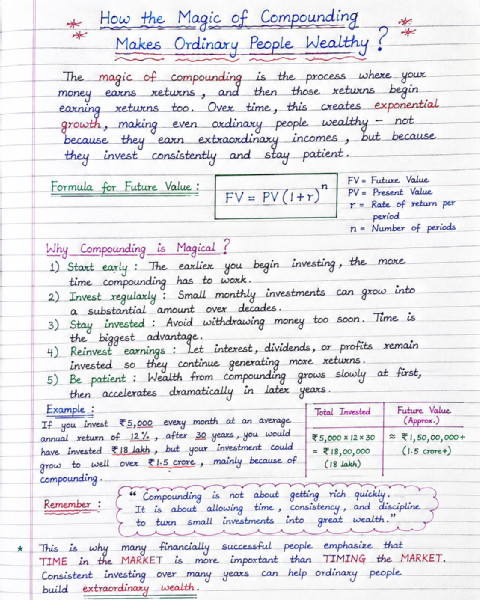 How the Magic of Compounding
Makes Ordinary People Wealthy?
The magic of compounding is the process where your
money earns returns, and then those returns begin
earning returns too. Over time, this creates exponential
growth, making even ordinary people wealthy – not
because they earn extraordinary incomes, but because
they invest consistently and stay patient.
Formula for Future Value :
FV = PV (1+r)^n
FV = Future Value
PV = Present Value
r = Rate of return per
period
n = Number of periods
Why Compounding is Magical ?
1) Start early : The earlier you begin investing, the more
time compounding has to work.
2) Invest regularly : Small monthly investments can grow into
a substantial amount over decades.
3) Stay invested : Avoid withdrawing money too soon. Time is
the biggest advantage.
4) Reinvest earnings : Let interest, dividends, or profits remain
invested so they continue generating more returns.
5) Be patient : Wealth from compounding grows slowly at first,
then accelerates dramatically in later years.
Example :
If you invest ₹5,000 every month at an average
annual return of 12%, after 30 years, you would
have invested ₹18 lakh, but your investment could
grow to well over ₹1.5 crore, mainly because of
compounding.
Total Invested
₹5,000 x 12 x 30
= ₹18,00,000
(18 lakh)
Future Value
(Approx.)
≈ ₹1,50,00,000+
(1.5 crore+)
Remember :
"Compounding is not about getting rich quickly.
It is about allowing time, consistency, and discipline
to turn small investments into great wealth."
★ This is why many financially successful people emphasize that
TIME in the MARKET is more important than TIMING the MARKET.
Consistent investing over many years can help ordinary people
build extraordinary wealth.